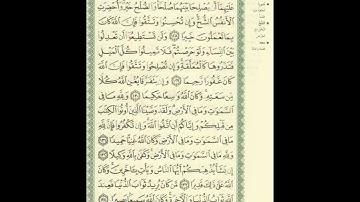 عَلَيْهِمَا أَن يُصْلِحَا بَيْنَهُمَا صُلْحًا وَالصُّلْحُ خَيْرٌ وَأُحْضِرَتِ
الْأَنفُسُ الشُّحَّ وَإِن تُحْسِنُوا وَتَتَّقُوا فَإِنَّ اللَّهَ كَانَ
بِمَا تَعْمَلُونَ خَبِيرًا ١٢٨ وَلَن تَسْتَطِيعُوا أَن تَعْدِلُوا
بَيْنَ النِّسَاءِ وَلَوْ حَرَصْتُمْ فَلَا تَمِيلُوا كُلَّ الْمَيْلِ
فَتَذَرُوهَا كَالْمُعَلَّقَةِ وَإِن تُصْلِحُوا وَتَتَّقُوا فَإِنَّ اللَّهَ
كَانَ غَفُورًا رَّحِيمًا ١٢٩ وَإِن يَتَفَرَّقَا يُغْنِ اللَّهُ كُلًّا
مِّن سَعَتِهِ وَكَانَ اللَّهُ وَاسِعًا حَكِيمًا ١٣٠ وَلِلَّهِ مَا فِي
السَّمَٰوَٰتِ وَمَا فِي الْأَرْضِ وَلَقَدْ وَصَّيْنَا الَّذِينَ أُوتُوا الْكِتَٰبَ
مِن قَبْلِكُمْ وَإِيَّاكُمْ أَنِ اتَّقُوا اللَّهَ وَإِن تَكْفُرُوا فَإِنَّ لِلَّهِ
مَا فِي السَّمَٰوَٰتِ وَمَا فِي الْأَرْضِ وَكَانَ اللَّهُ غَنِيًّا حَمِيدًا ١٣١
وَلِلَّهِ مَا فِي السَّمَٰوَٰتِ وَمَا فِي الْأَرْضِ وَكَفَىٰ بِاللَّهِ وَكِيلًا ١٣٢
إِن يَشَأْ يُذْهِبْكُمْ أَيُّهَا النَّاسُ وَيَأْتِ بِـَٔاخَرِينَ وَكَانَ
اللَّهُ عَلَىٰ ذَٰلِكَ قَدِيرًا ١٣٣ مَّن كَانَ يُرِيدُ ثَوَابَ الدُّنْيَا فَعِندَ
اللَّهِ ثَوَابُ الدُّنْيَا وَالْآخِرَةِ وَكَانَ اللَّهُ سَمِيعًا بَصِيرًا